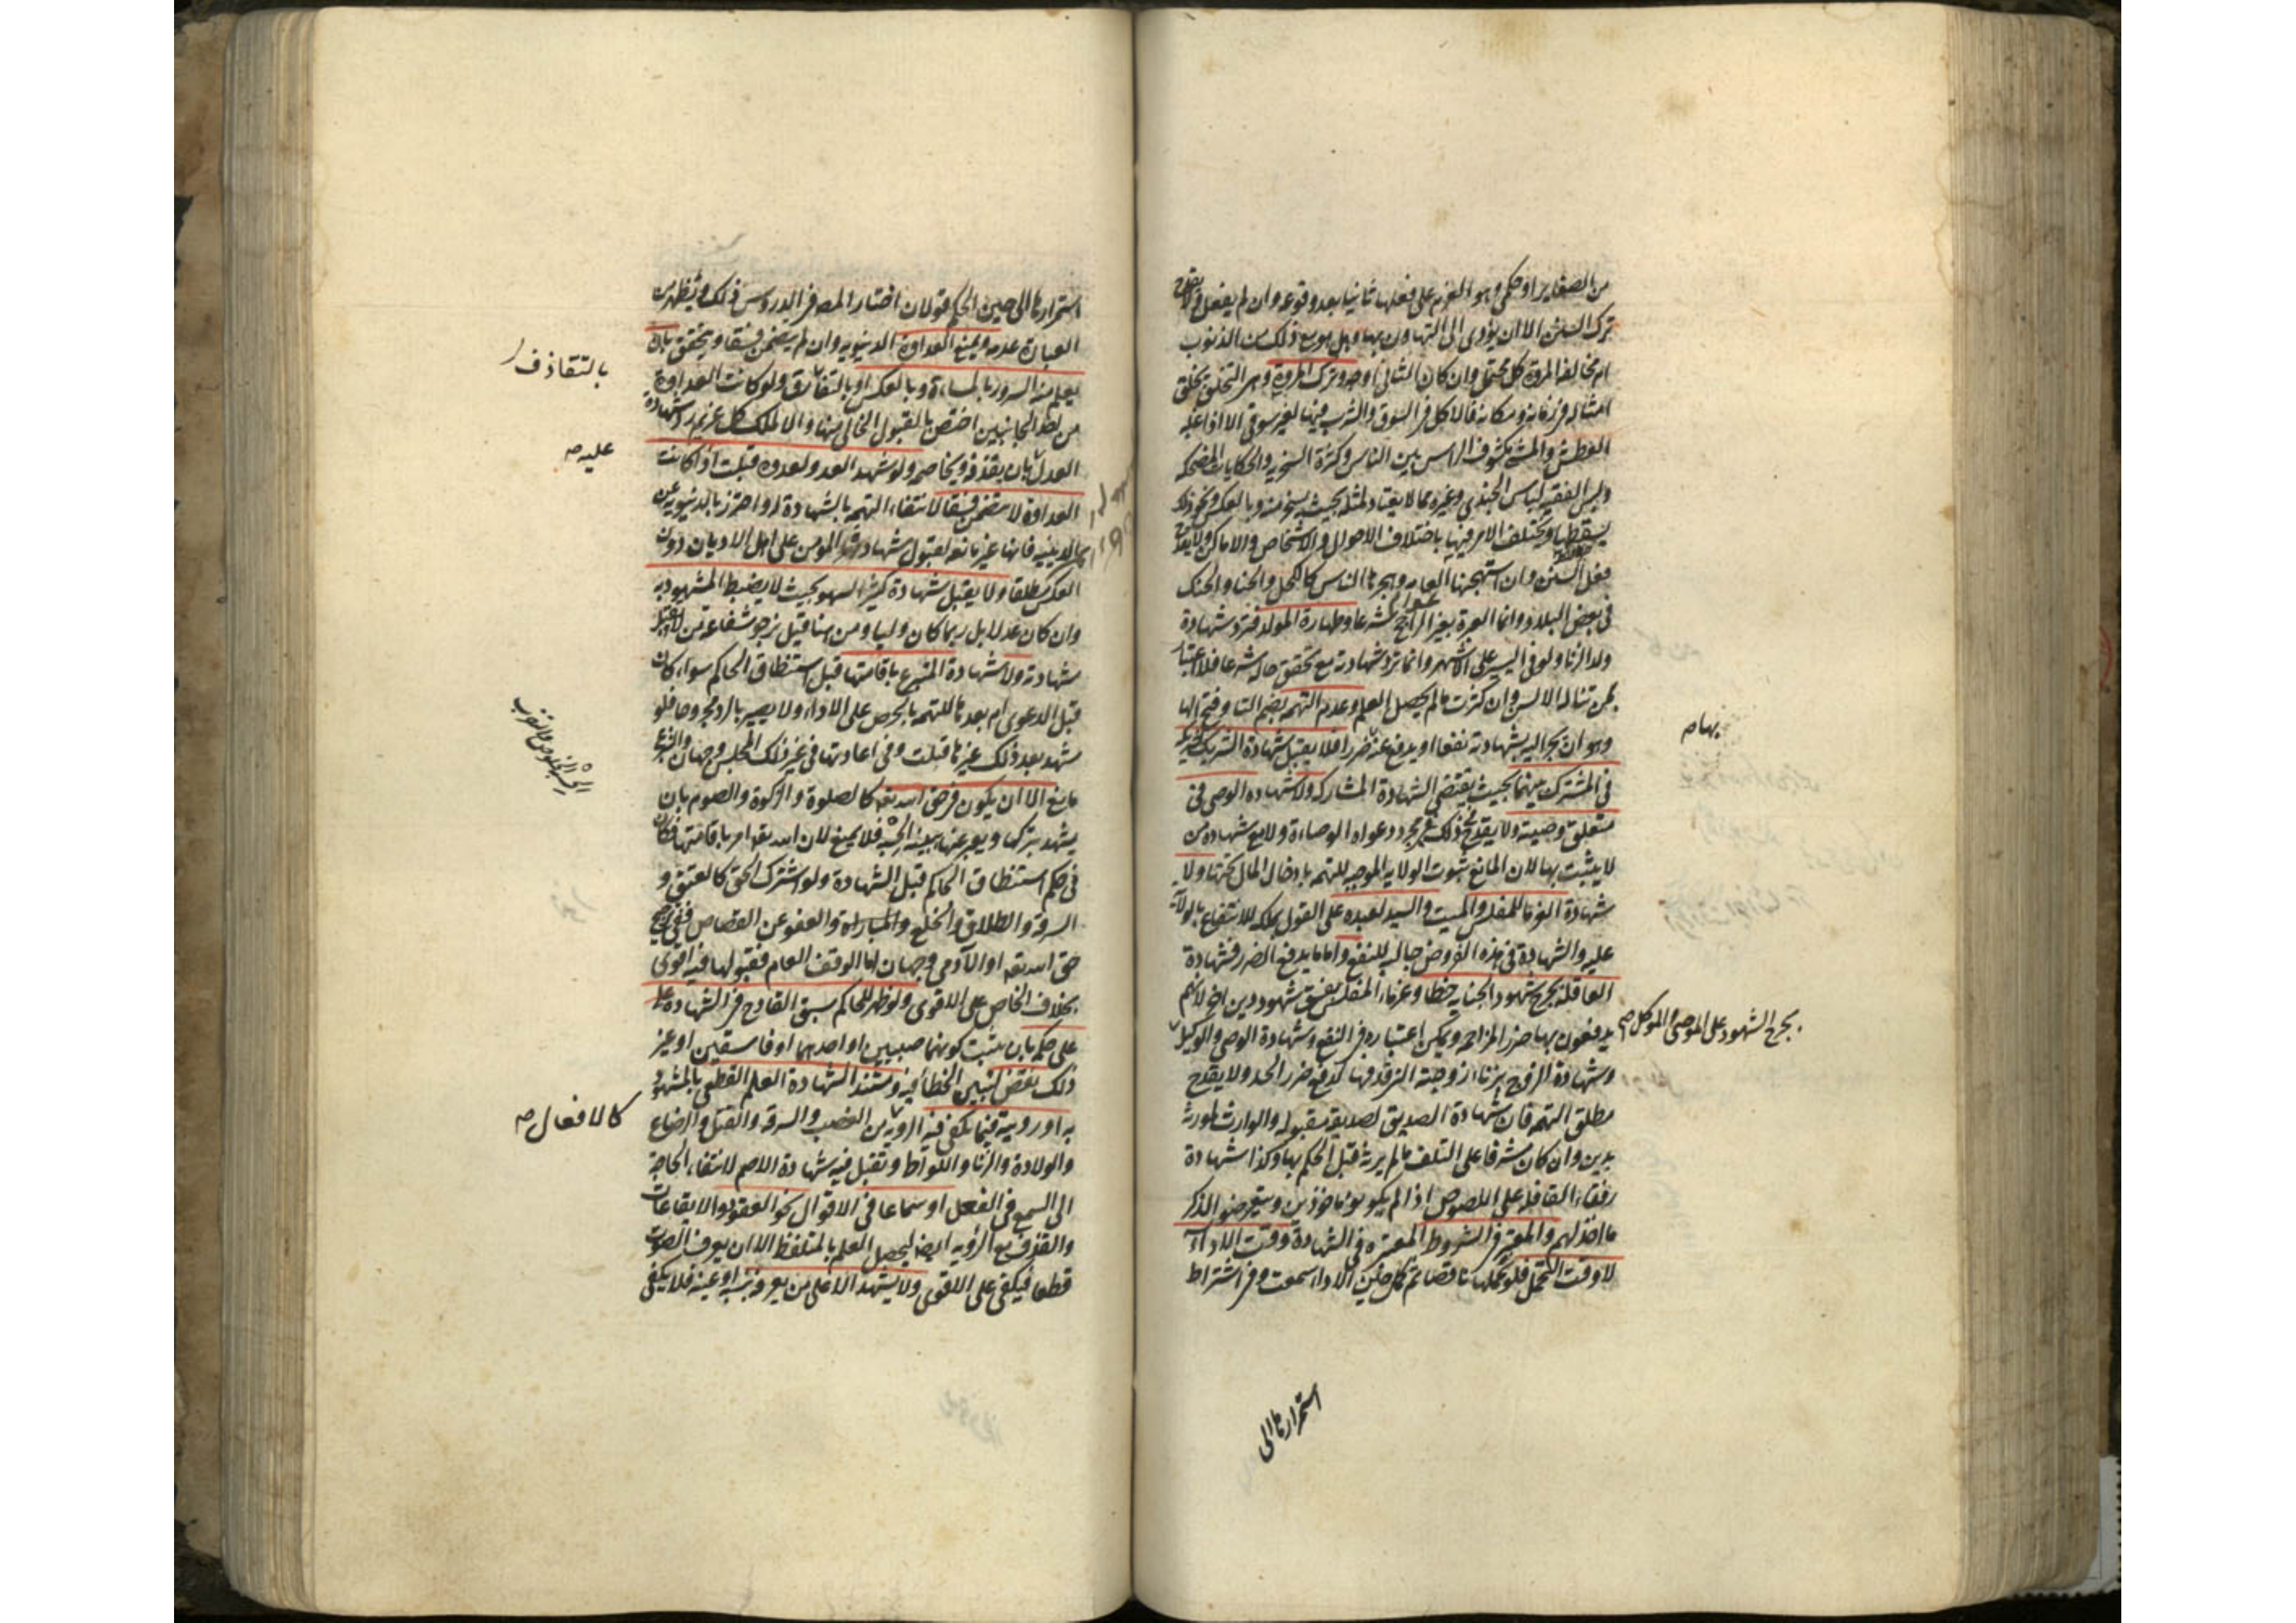 من الصغاير او حكمي وهو العزم على فعلها ثانيا بعد وقوعه وان لم يفعل ولا يقدح
ترك السنن الا ان يؤدى الى التهاون بها وهل هو مع ذلك من الذنوب
ام مخالفة المروة كل محتمل وان كان الثانى اوجه وترك المروة وهى التخلق بخلق
امثاله فى زمانه ومكانه فالاكل فى السوق والشرب فيها لغير سوقى الا اذا غلبه
العطش والمشى مكشوف الراس بين الناس وكثرة السخرية والحكايات المضحكه
ولبس الفقيه لباس الجندى وغيره مما لا يعتاد لمثله بحيث يسخر منه وبالعكس ونحو ذلك
يسقطها ويختلف الامر فيها باختلاف الاحوال والاشخاص والاماكن ولا يقدح
فعل السنن وان استهجنها العامه وهجرها الناس كالكحل والحنا والحنك
فى بعض البلاد وانما العبرة بغير الراجح شرعا وطهارة المولد فترد شهادة
ولد الزنا ولو فى اليسير على الاشهر وانما ترد شهادته مع تحقق حاله شرعا فلا اعتبار
بمن تناله الالسن وان كثرت ما لم يحصل العلم وعدم التهمه بضم التا وفتح الها
وهو ان يجر اليه بشهادته نفعا او يدفع عنه ضررا فلا يقبل شهادة الشريك لشريكه
فى المشترك بينهما بحيث يقتضى الشهادة المشاركه ولا شهادة الوصى فى
متعلق وصيته ولا يقدح فى ذلك مجرد دعواه الوصاءة ولا مع شهادة من
لا يثبت بها لان المانع ثبوت الولايه الموجبه للتهمه بادخال المال تحتها ولا
شهادة الغرما للمفلس والميت والسيد لعبده على القول بملكه للانتفاع بالولاية
عليه والشهادة فى هذه الفروض جالبه للنفع واما ما يدفع الضرر فشهادة
العاقلة بجرح شهود الجنايه خطا وغرماء المفلس بفسق شهود دين اخر لانهم
يدفعون بها ضرر المزاحمه ويمكن اعتباره فى النفع وشهادة الوصى والوكيل
وشهادة الزوج بزناء زوجته التى قذفها لدفع ضرر الحد ولا يقدح
مطلق التهمه فان شهادة الصديق لصديقه مقبوله والوارث لمورثه
بدين وان كان مشرفا على التلف ما لم يرثه قبل الحكم بها وكذا شهادة
رفقاء القافله على اللصوص اذا لم يكونوا ماخوذين ويتعرضوا لذكر
ما اخذ لهم والمعتبر فى الشروط المعتبره فى الشهادة وقت الاداء
لا وقت التحمل فلو تحملها ناقصا ثم كمل حين الاداء سمعت وفى اشتراط
استمرارها الى
بهاء ص
بجرح الشهود على الموصى والموكل ص
استمرارها الى حين الحكم قولان اختار المص فى الدروس ذلك ويظهر من
العبارة عدمه ويمنع العداوة الدنيويه وان لم يتضمن فسقا ويتحقق بان
يعلم منه السرور بالمساءة وبالعكس او بالتقاذف ولو كانت العداوة
من احد الجانبين اختص بالقبول الخالى منها والا لملك كل غريم رد شهادة
العدل بان يقذفه ويخاصمه ولو شهد العدو لعدوه قبلت اذا كانت
العداوة لا يتضمن فسقا لانتفاء التهمه بالشهادة له واحترز بالدنيويه عن
الدينيه فانها غير مانعه لقبول شهادة المومن على اهل الاديان دون
العكس مطلقا ولا يقبل شهادة كثير السهو بحيث لا يضبط المشهود به
وان كان عدلا بل ربما كان وليا ومن هنا قيل نرجو شفاعة من لا يقبل
شهادته ولا شهادة المتبرع باقامتها قبل استنطاق الحاكم سواء كان
قبل الدعوى ام بعدها للتهمه بالحرص على الاداء ولا يصير بالرد مجروحا فلو
شهد بعد ذلك غيرها قبلت وفى اعادتها فى غير ذلك المجلس وجهان والتبرع
مانع الا ان يكون فى حق الله تعه كالصلوة والزكوة والصوم بان
يشهد بتركها ويعبر عنها ببينه الحسبه فلا يمنع لان الله تعه امر باقامتها فكان
فى حكم استنطاق الحاكم قبل الشهادة ولو اشترك الحق كالعتق و
السرقه والطلاق والخلع والمباراه والعفو عن القصاص ففى ترجيح
حق الله تعه او الآدمى وجهان اما الوقف العام فقبولها فيه اقوى
بخلاف الخاص على الاقوى ولو ظهر للحاكم سبق القادح فى الشهادة على
على حكمه بان يثبت كونهما صبيين او احدهما او فاسقين او غير
ذلك نقض لتبين الخطا فيه ومستند الشهادة العلم القطعى بالمشهود
به او رويته فيما يكفى فيه الرويه من الغصب والسرقه والقتل والرضاع
والولادة والزنا واللواط وتقبل فيه شهادة الاصم لانتفاء الحاجة
الى السمع فى الفعل او سماعا فى الاقوال نحو العقود والايقاعات
والقذف مع الرويه ايضا ليحصل العلم بالمتلفظ الا ان يعرف الصوت
قطعا فيكفى على الاقوى ولا يشهد الا على من يعرفه بنسبه او عينه فلا يكفى
بالتقاذف
عليه ص
كالافعال ص